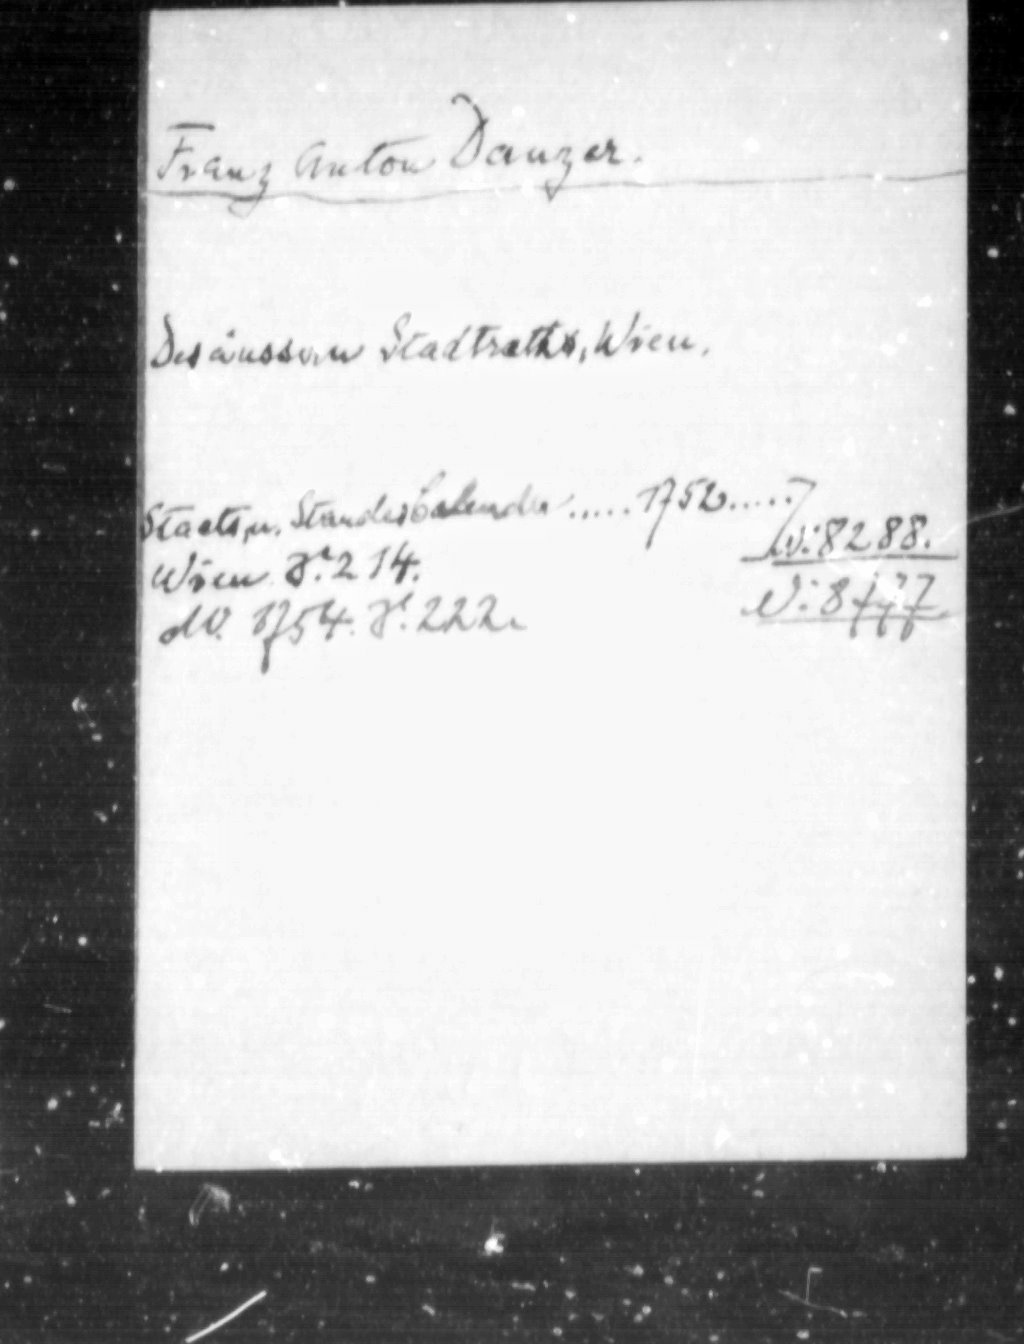 Franz Anton Danzer.
Des äussern Stadtraths, Wien.
Staats u. Standes Calender ..... 1752 .....
Wien S. 214. N: 8288.
do. 1754. S. 222. N: 8777